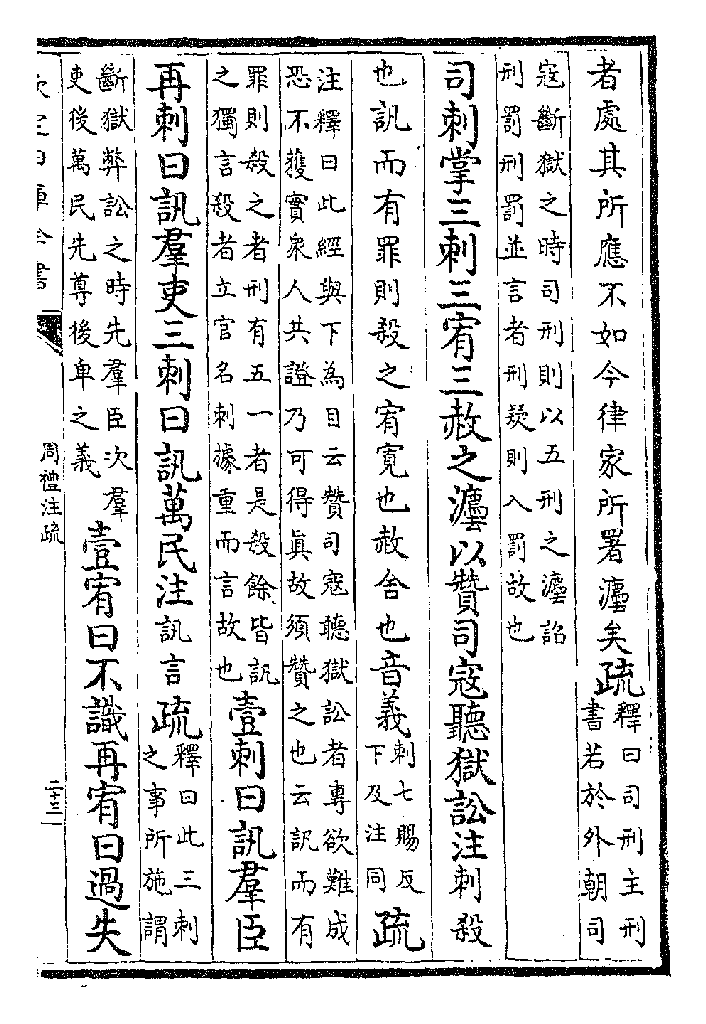 者處其所應不如今律家所署灋矣疏釋曰司刑主刑
書若於外朝司
寇斷獄之時司刑則以五刑之灋詔
刑罰刑罰並言者刑疑則入罰故也
司刺掌三刺三宥三赦之灋以贊司寇聽獄訟注刺殺
也訊而有罪則殺之宥寬也赦舍也音義刺七賜反
下及注同疏
注釋曰此經與下為目云贊司寇聽獄訟者專欲難成
恐不獲實衆人共證乃可得眞故須贊之也云訊而有
罪則殺之者刑有五一者是殺餘皆訊
之獨言殺者立官名刺據重而言故也壹刺曰訊羣臣
再刺曰訊羣吏三刺曰訊萬民注訊言疏釋曰此三刺
之事所施謂
斷獄弊訟之時先羣臣次羣
吏後萬民先尊後卑之義壹宥曰不識再宥曰過失
欽定四庫全書
周禮注疏
二十三